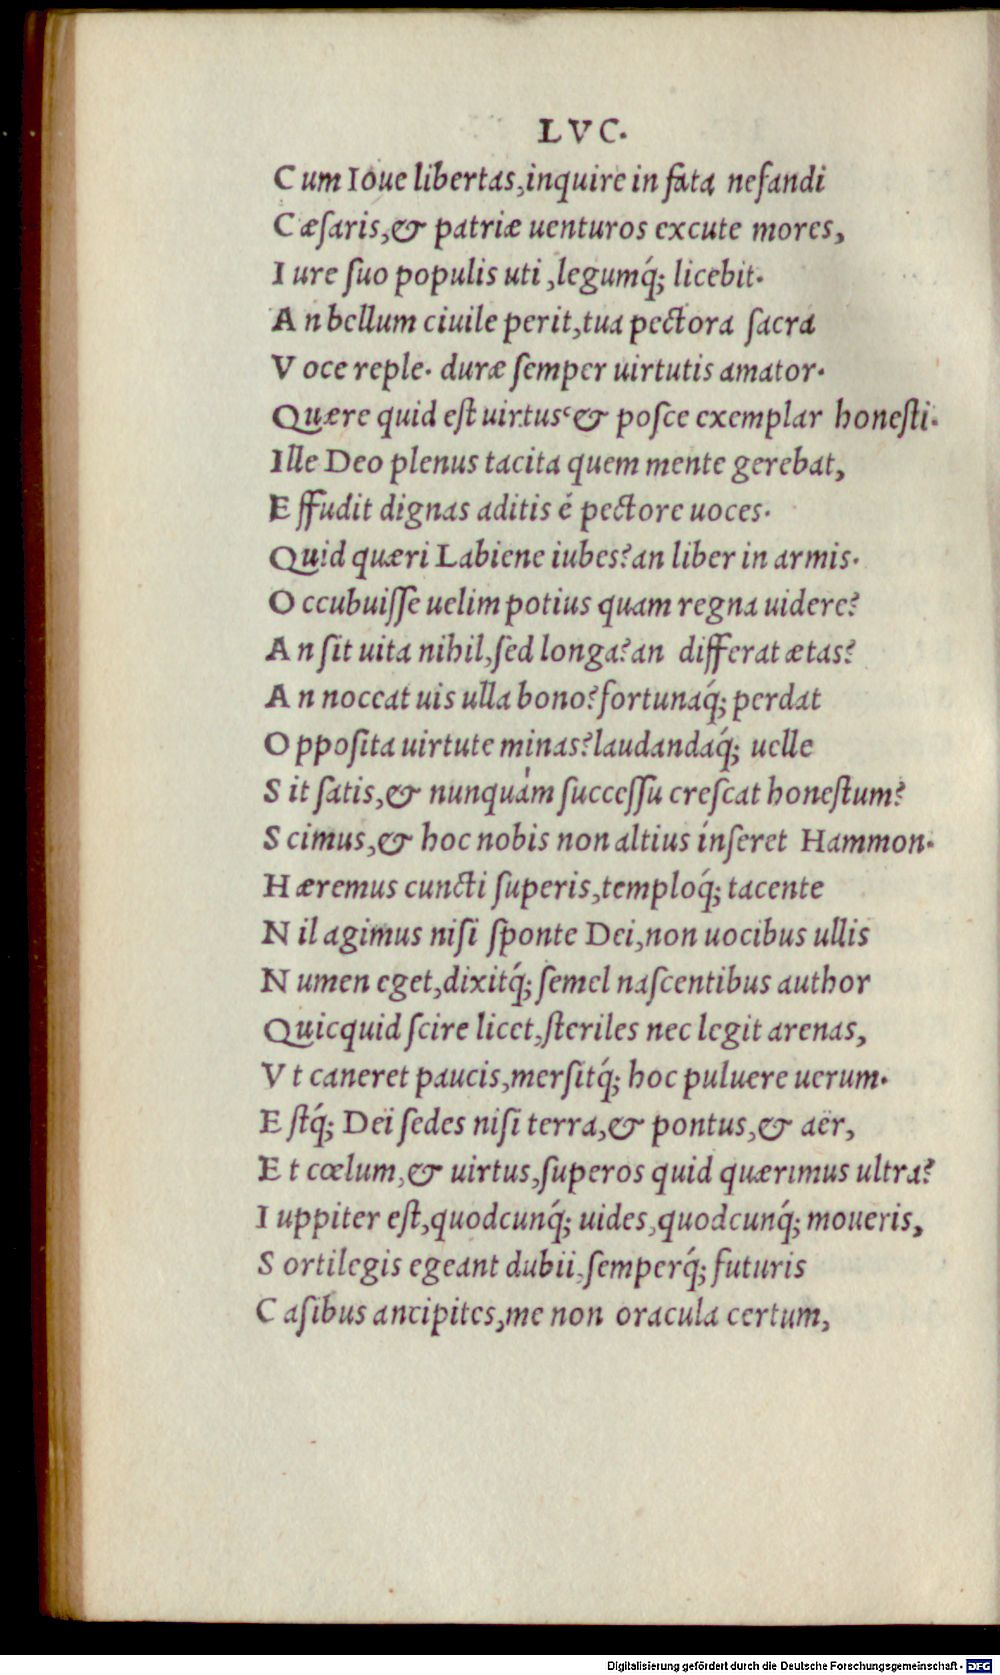 LVC.
C um Ioue libertas,inquire in fata nefandi
C æſaris,& patriæ uenturos excute mores,
I ure ſuo populis uti,legumq́; licebit.
A n bellum ciuile perit,tua pectora ſacra
V oce reple. duræ ſemper uirtutis amator.
Quære quid eſt uirtus?& poſce exemplar honeſti.
Ille Deo plenus tacita quem mente gerebat,
E ffudit dignas aditis é pectore uoces.
Quid quæri Labiene iubes?an liber in armis.
O ccubuiſſe uelim potius quam regna uidere?
A n ſit uita nihil,ſed longa?an differat ætas?
A n noceat uis ulla bono?fortunaq́; perdat
O ppoſita uirtute minas?laudandaq́; uelle
S it ſatis,& nunquám ſucceſſu creſcat honeſtum?
S cimus,& hoc nobis non altius inſeret Hammon.
H æremus cuncti ſuperis,temploq́; tacente
N il agimus niſi ſponte Dei,non uocibus ullis
N umen eget,dixitq́; ſemel naſcentibus author
Quicquid ſcire licet,ſteriles nec legit arenas,
V t caneret paucis,merſitq́; hoc puluere uerum.
E ſtq́; Deï ſedes niſi terra,& pontus,& aër,
E t cœlum,& uirtus,ſuperos quid quærimus ultra?
I uppiter eſt,quodcunq́; uides,quodcunq́; moueris,
S ortilegis egeant dubii,ſemperq́; futuris
C aſibus ancipites,me non oracula certum,
Digitalisierung gefördert durch die Deutsche Forschungsgemeinschaft - DFG